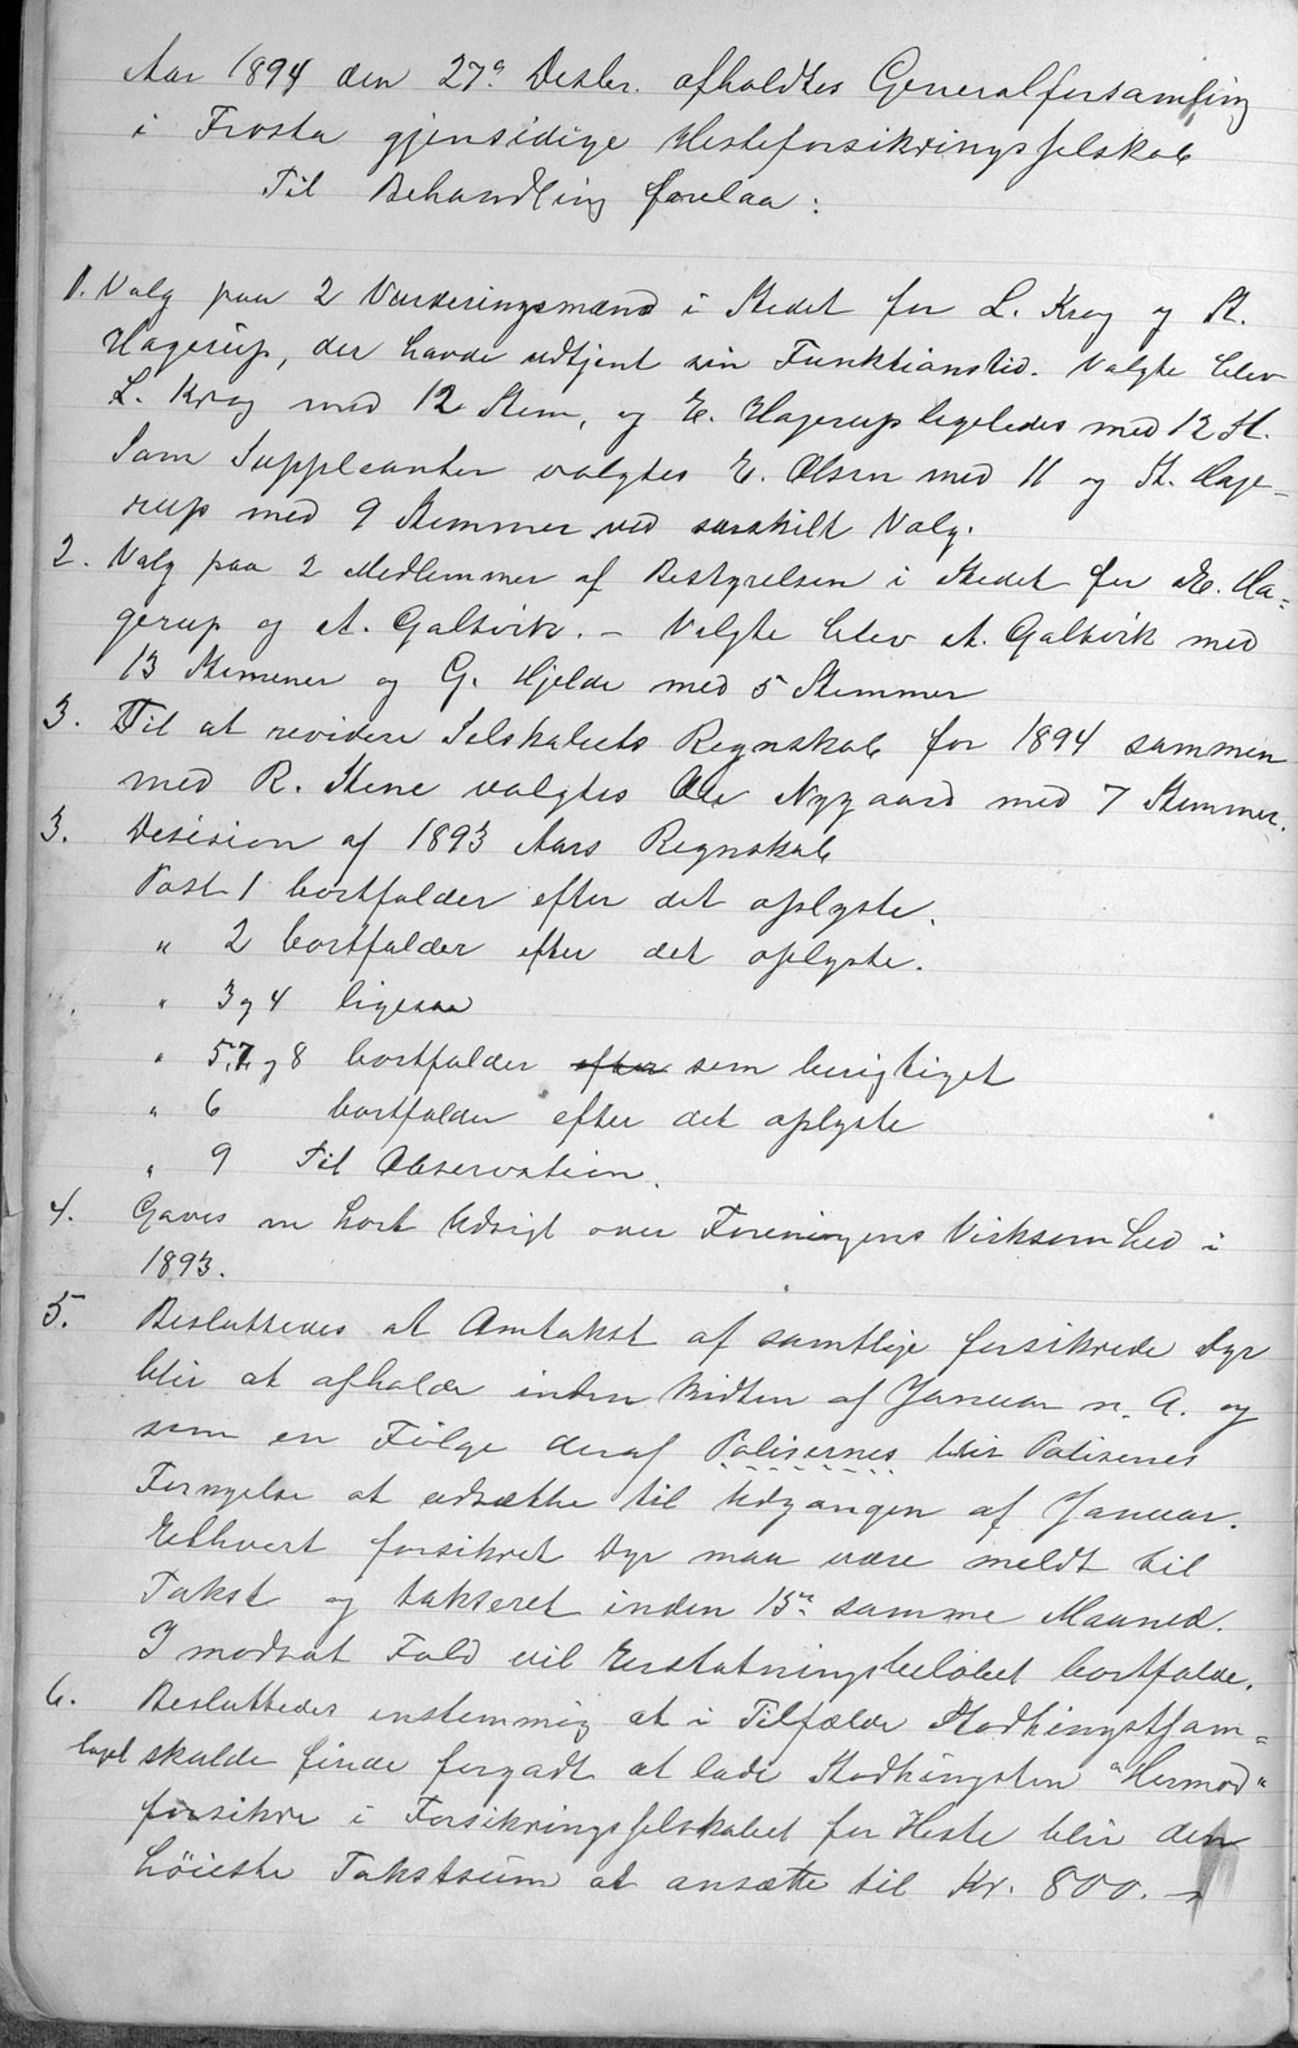 Aar 1894 den 27de Desbr. afholdtes Generalforsamling
i Frosta gjensidige Hesteforsikringsselskab
Til Behandling forelaa:
1. Valg paa 2 Vurderingsmænd i Stedet for L. Krog og St.
Hagerup, der havde udtjent sin Funktionstid. Valgte blev
L. Krog med 12 Stem, og E. Hagerup ligeledes med 12 St.
Som Suppleanter valgtes E. Olsen med 11 og St. Hage-
rup med 9 Stemmer ved særskilt Valg.
2. Valg paa 2 Medlemmer af Bestyrelsen i Stedet for E. Ha=
gerup og A. Galtvik. – Valgte blev A. Galtvik med
13 Stemmer og G. Hjelde med 5 Stemmer
3. Til at revidere Selskabets Regnskab for 1894 sammen
med R. Stene valgtes Ole Nygaard med 7 Stemmer.
3. Desision af 1893 Aars Regnskab
Post 1 bortfalder efter det oplyste.
" 2 bortfalder efter det oplyste.
" 3 og 4 ligesaa
" 5, 7 og 8 bortfalder efter som berigtiget
" 6 bortfalder efter det oplyste
" 9 Til Observation.
4. Gaves en kort Udsigt over Foreningens Virksomhed i
1893.
5. Besluttedes at Omtakst af samtlige forsikrede Dyr
blir at afholde inden Midten af Januar n. A. og
som en Følge deraf Polisernes blir Polisenes
Fornyelse at udsætte til Udgangen af Januar.
Ethvert forsikret Dyr maa være meldt til
Takst og takseret inden 15de samme Maaned.
I modsat Fald vil Erstatningsbeløbet bortfalde.
6. Besluttedes enstemmig at i Tilfælde Stodhingstsam=
laget skulde finde forgodt at lade Stodhingsten "Hermod"
forsikre i Forsikringsselskabet for Heste blir den
höieste Takstsum at ansætte til Kr. 800. –